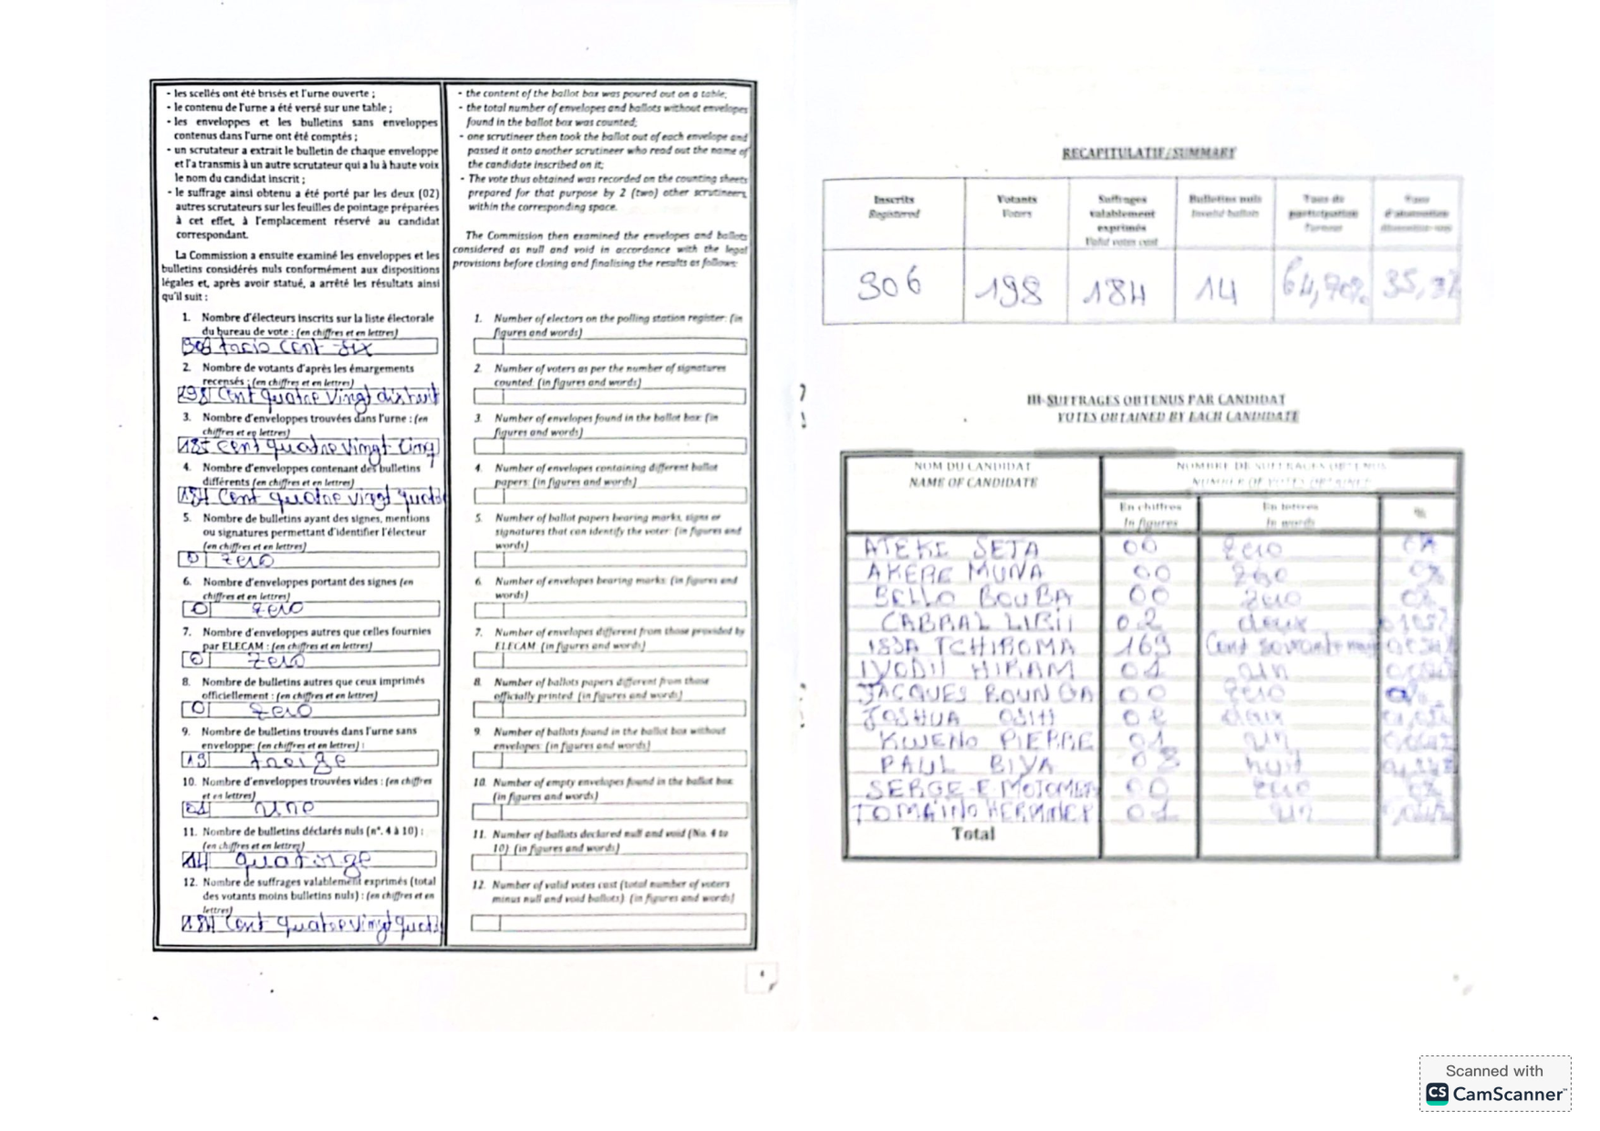 - les scellés ont été brisés et l'urne ouverte ;
- le contenu de l'urne a été versé sur une table ;
- les enveloppes et les bulletins sans enveloppes
contenus dans l'urne ont été comptés ;
- un scrutateur a extrait le bulletin de chaque enveloppe
et l'a transmis à un autre scrutateur qui a lu à haute voix
le nom du candidat inscrit ;
- le suffrage ainsi obtenu a été porté par les deux (02)
autres scrutateurs sur les feuilles de pointage préparées
à cet effet, à l'emplacement réservé au candidat
correspondant.
La Commission a ensuite examiné les enveloppes et les
bulletins considérés nuls conformément aux dispositions
légales et, après avoir statué, a arrêté les résultats ainsi
qu'il suit :
1. Nombre d'électeurs inscrits sur la liste électorale
du bureau de vote : (en chiffres et en lettres)
306 trois cent six
2. Nombre de votants d'après les émargements
recensés : (en chiffres et en lettres)
198 Cent quatre vingt dixhuit
3. Nombre d'enveloppes trouvées dans l'urne : (en
chiffres et en lettres)
185 Cent quatre vingt cinq
4. Nombre d'enveloppes contenant des bulletins
différents (en chiffres et en lettres)
184 Cent quatre vingt
5. Nombre de bulletins ayant des signes, mentions
ou signatures permettant d'identifier l'électeur
(en chiffres et en lettres)
0 zero
6. Nombre d'enveloppes portant des signes (en
chiffres et en lettres)
0 zero
7. Nombre d'enveloppes autres que celles fournies
par ELECAM : (en chiffres et en lettres)
0 zero
8. Nombre de bulletins autres que ceux imprimés
officiellement : (en chiffres et en lettres)
0 zero
9. Nombre de bulletins trouvés dans l'urne sans
enveloppe: (en chiffres et en lettres) :
13 treize
10. Nombre d'enveloppes trouvées vides : (en chiffres
et en lettres)
01 une
11. Nombre de bulletins déclarés nuls (n°. 4 à 10) :
(en chiffres et en lettres)
14 quatorze
12. Nombre de suffrages valablement exprimés (total
des votants moins bulletins nuls) : (en chiffres et en
lettres)
184 Cent quatre vingt
- the content of the ballot box was poured out on a table;
- the total number of envelopes and ballots without envelopes
found in the ballot box was counted;
- one scrutineer then took the ballot out of each envelope and
passed it onto another scrutineer who read out the name of
the candidate inscribed on it;
- The vote thus obtained was recorded on the counting sheets
prepared for that purpose by 2 (two) other scrutineers,
within the corresponding space.
The Commission then examined the envelopes and ballots
considered as null and void in accordance with the legal
provisions before closing and finalising the results as follows:
1. Number of electors on the polling station register: (in
figures and words)
2. Number of voters as per the number of signatures
counted: (in figures and words)
3. Number of envelopes found in the ballot box: (in
figures and words)
4. Number of envelopes containing different ballot
papers: (in figures and words)
5. Number of ballot papers bearing marks, signs or
signatures that can identify the voter: (in figures and
words)
6. Number of envelopes bearing marks: (in figures and
words)
7. Number of envelopes different from those provided by
ELECAM (in figures and words)
8. Number of ballots papers different from those
officially printed: (in figures and words)
9. Number of ballots found in the ballot box without
envelopes: (in figures and words)
10. Number of empty envelopes found in the ballot box:
(in figures and words)
11. Number of ballots declared null and void (No. 4 to
10): (in figures and words)
12. Number of valid votes cast (total number of voters
minus null and void ballots): (in figures and words)
4
RECAPITULATIF/SUMMARY
Inscrits Votants Suffrages valablement exprimés Bulletins nuls Taux de participation Taux d'abstention
Registered Voters Valid votes cast Invalid ballots Turnout
306 198 184 14 64,70% 35,3%
III-SUFFRAGES OBTENUS PAR CANDIDAT
VOTES OBTAINED BY EACH CANDIDATE
NOM DU CANDIDAT NOMBRE DE SUFFRAGES OBTENUS
NAME OF CANDIDATE NUMBER OF VOTES OBTAINED
En chiffres En lettres %
In figures In words
ATEKI SETA 00 zero 0%
AKERE MUNA 00 zero 0%
BELLO BOUBA 00 zero 0%
CABRAL LIBII 02 deux
ISSA TCHIROMA 169 Cent soixante
IYODII HIRAM 01 un
JACQUES BOUNGA 00 zero 0%
JOSHUA OSIH 02 deux
KWEMO PIERRE 01 un
PAUL BIYA 08 huit
SERGE E MOTOMBA 00 zero 0%
TOMAINO HERMINE 01 un
Total
Scanned with
CS CamScanner